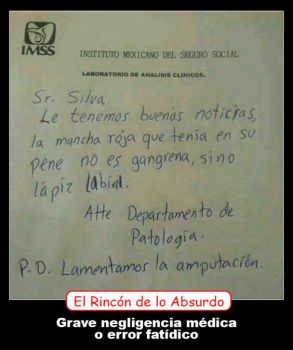 IMSS
INSTITUTO MEXICANO DEL SEGURO SOCIAL
LABORATORIO DE ANALISIS CLINICOS.
Sr. Silva.
Le tenemos buenas noticias,
la mancha roja que tenía en su
pene no es gangrena, sino
lápiz labial.
Atte Departamento de
Patología.
P.D. Lamentamos la amputación.
El Rincón de lo Absurdo
Grave negligencia médica
o error fatídico